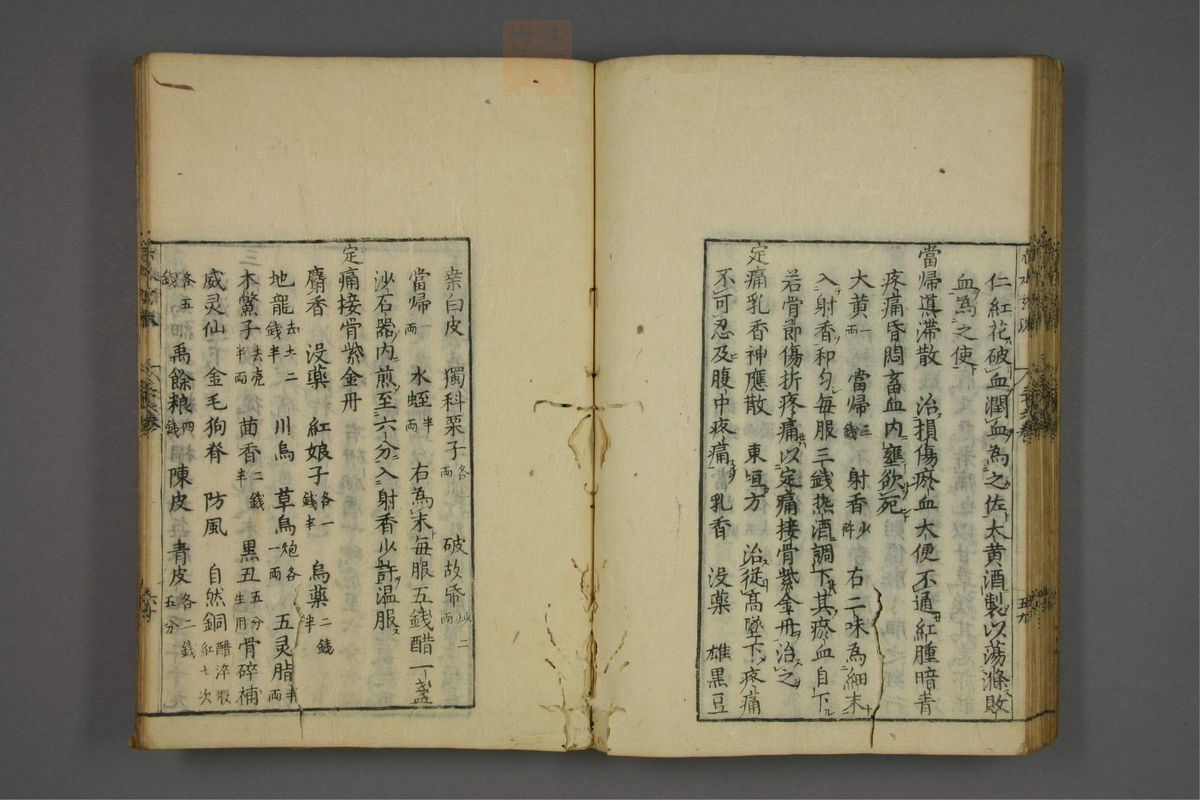 仁紅花破血潤血為之佐大黄酒製以蕩滌敗
血為之使
當帰導滞散 治損傷瘀血大便不通紅腫暗青
疼痛昏悶畜血内壅欲死
大黄一両 當帰三銭 射香少許 右二味為細末
入射香和匀毎服三銭热酒調下其瘀血自下
若骨節傷折疼痛以定痛接骨紫金丹治之
定痛乳香神應散 東垣方 治従髙墜下疼痛
不可忍及腹中疼痛 乳香 没藥 雄黒豆
桒白皮 獨科栗子各両 破故帋炒二両
當帰一両 水蛭半両 右為末毎服五銭醋一盞
沙石器内煎至六分入射香少許温服
定痛接骨紫金丹
麝香 没藥 紅娘子各一銭半 烏藥二銭半
地龍去土二銭半 川烏 草烏炮各一両 五灵脂半両
木鱉子去売半両 茴香二銭半 黒丑五分生用 骨碎補
威灵仙 金毛狗脊 防風 自然銅醋淬煆紅七次
各五銭 禹餘粮四銭 陳皮 青皮各二銭五分